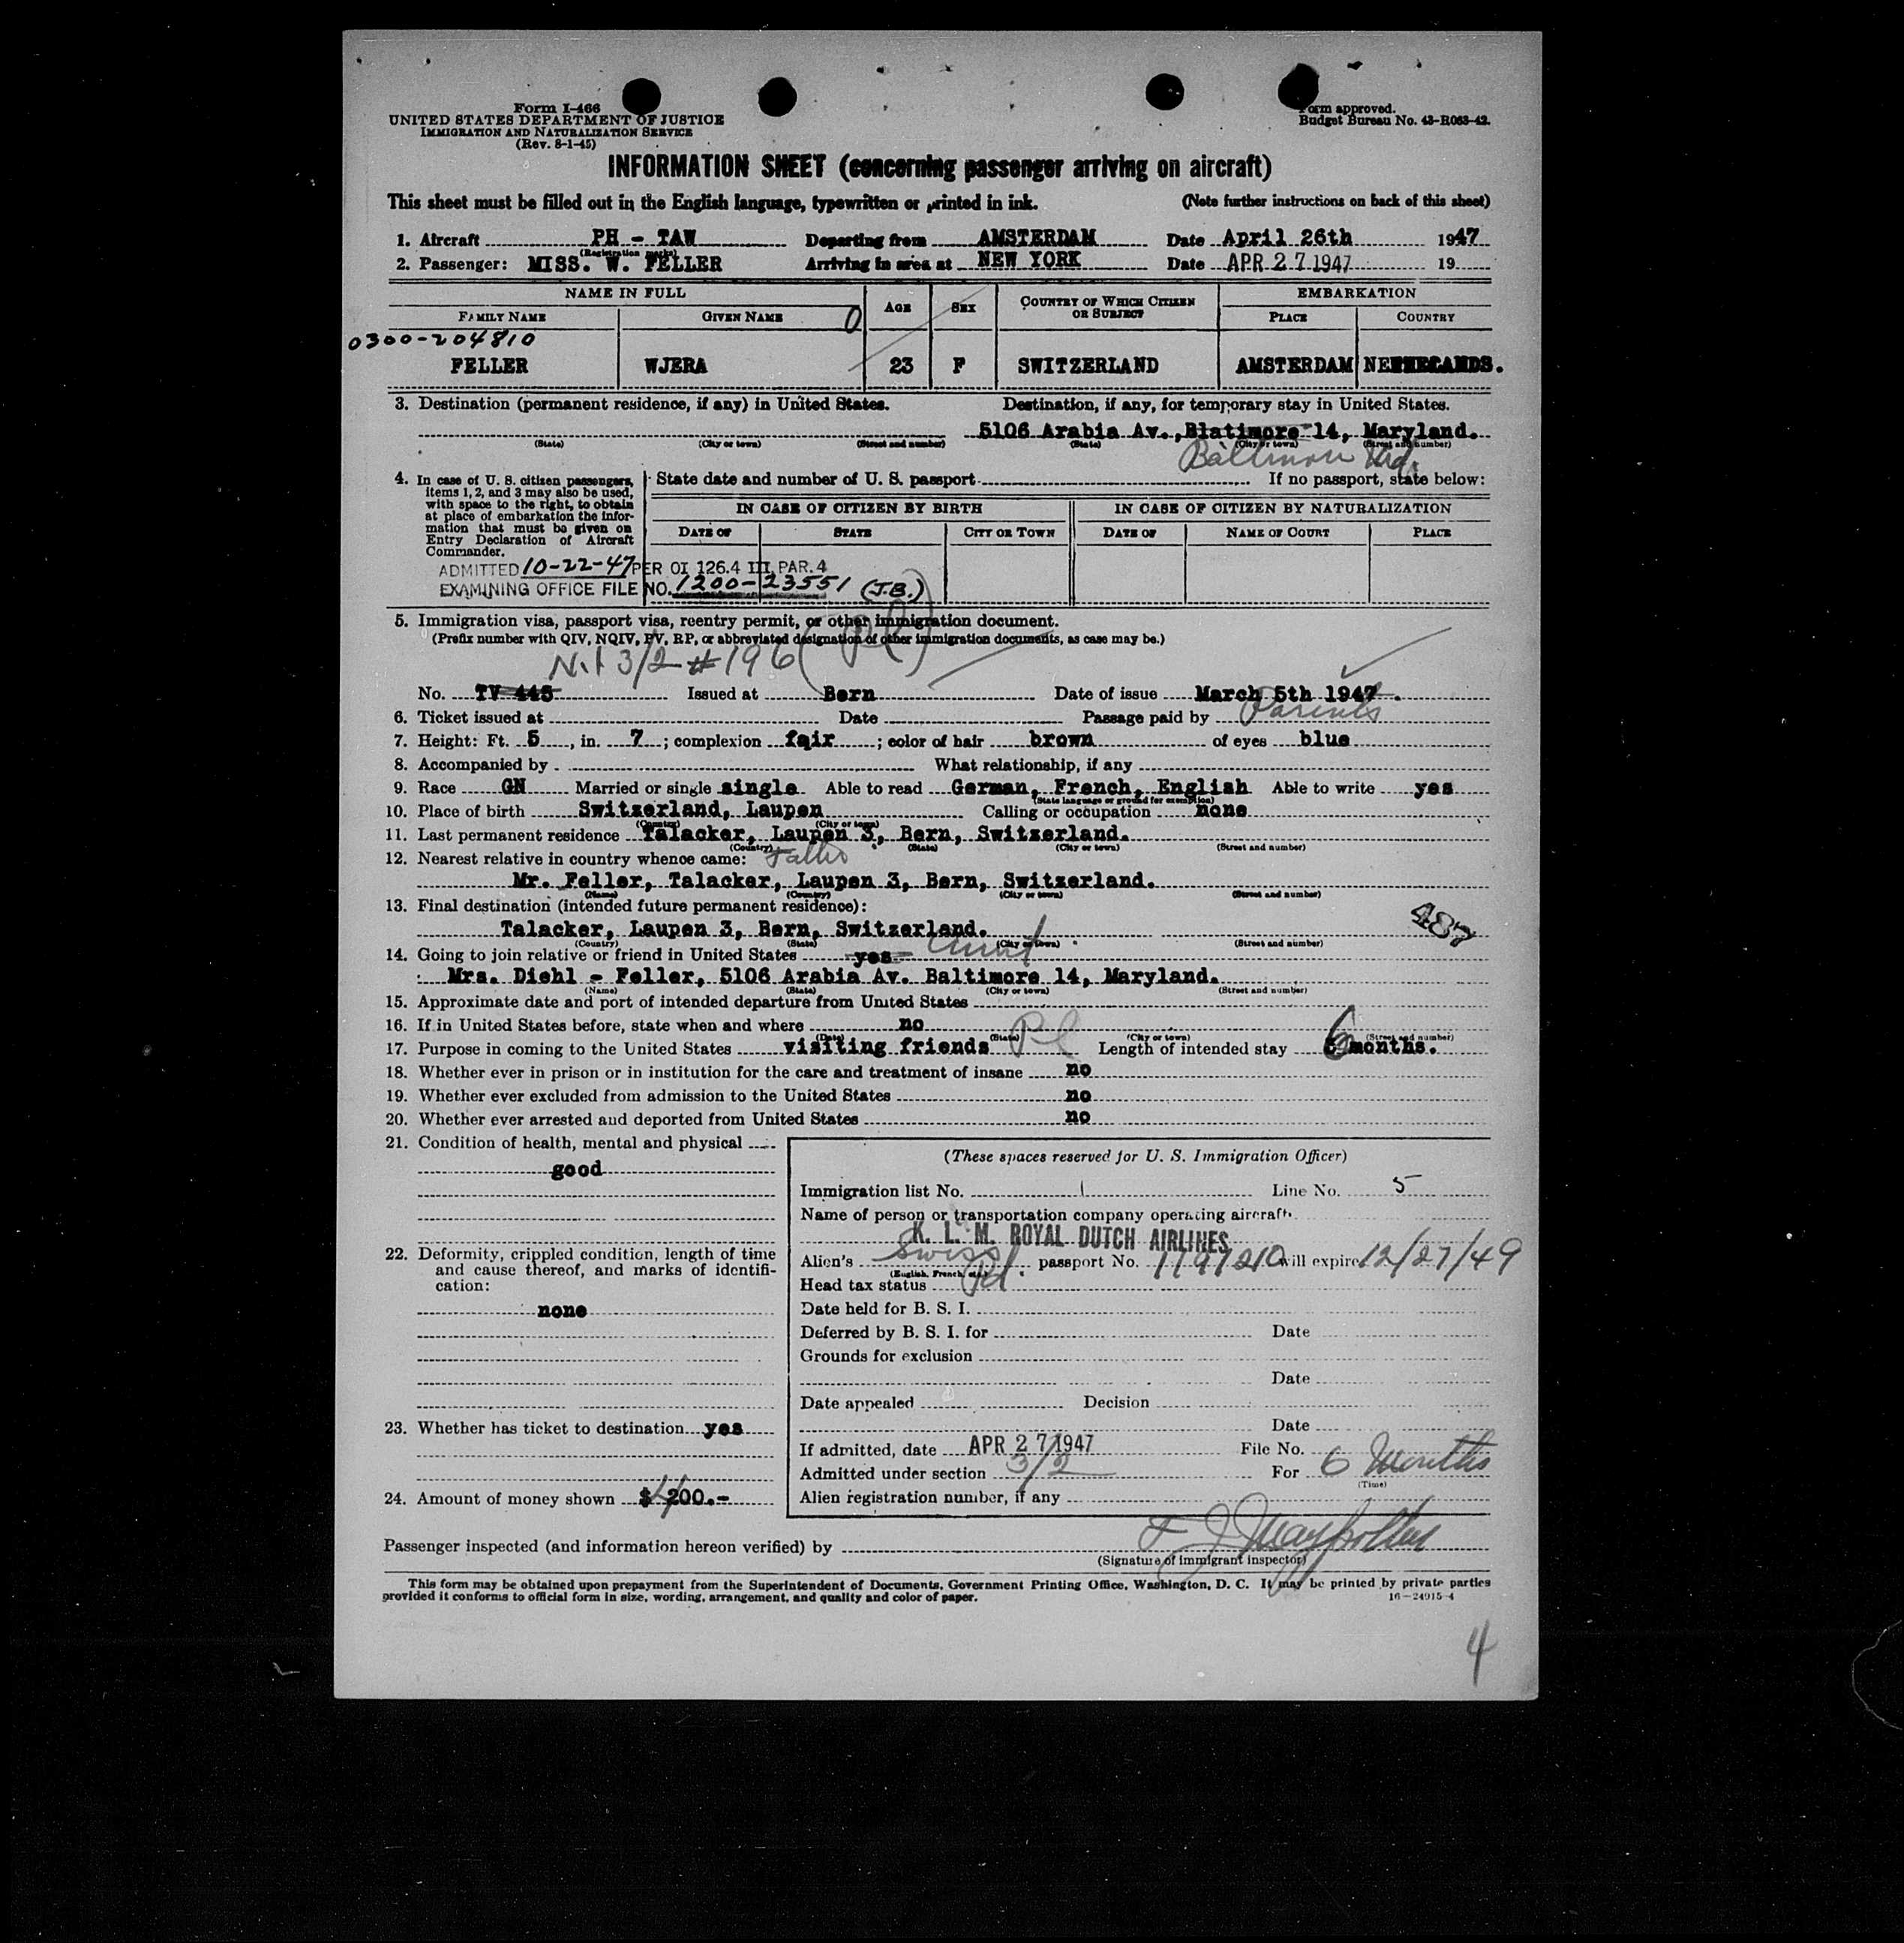 Form I-466
UNITED STATES DEPARTMENT OF JUSTICE
IMMIGRATION AND NATURALIZATION SERVICE
(Rev. 8-1-45)
Form approved.
Budget Bureau No. 43-R063-42.
INFORMATION SHEET (concerning passenger arriving on aircraft)
This sheet must be filled out in the English language, typewritten or printed in ink. (Note further instructions on back of this sheet)
1. Aircraft PH - TAW Departing from AMSTERDAM Date April 26th 1947
(Registration marks)
2. Passenger: MISS. W. FELLER Arriving in area at NEW YORK Date APR 27 1947 19
NAME IN FULL AGE SEX COUNTRY OF WHICH CITIZEN OR SUBJECT EMBARKATION
FAMILY NAME GIVEN NAME 0 PLACE COUNTRY
0300-204810
FELLER WJERA 23 F SWITZERLAND AMSTERDAM
3. Destination (permanent residence, if any) in United States. Destination, if any, for temporary stay in United States.
5106 Arabia Av., Blatimore 14, Maryland.
(State) (City or town) (Street and number) (State) (City or town) (Street and number)
Baltimore Md.
4. In case of U. S. citizen passengers, items 1, 2, and 3 may also be used, with space to the right, to obtain at place of embarkation the information that must be given on Entry Declaration of Aircraft Commander.
State date and number of U. S. passport If no passport, state below:
IN CASE OF CITIZEN BY BIRTH IN CASE OF CITIZEN BY NATURALIZATION
DATE OF STATE CITY OR TOWN DATE OF NAME OF COURT PLACE
ADMITTED 10-22-47 PER OI 126.4 III, PAR. 4
EXAMINING OFFICE FILE NO. 1200-23551 (J.B.)
5. Immigration visa, passport visa, reentry permit, or other immigration document.
(Prefix number with QIV, NQIV, PV, RP, or abbreviated designation of other immigration documents, as case may be.)
3/2 #196 (Pl)
No. TV 445 Issued at Bern Date of issue March 5th 1947.
6. Ticket issued at Date Passage paid by Parents
7. Height: Ft. 5, in. 7; complexion fair; color of hair brown of eyes blue
8. Accompanied by What relationship, if any
9. Race GN Married or single single Able to read German, French, English Able to write yes
(State language or ground for exemption)
10. Place of birth Switzerland, Laupen Calling or occupation none
(Country) (City or town)
11. Last permanent residence Talacker, Laupen 3, Bern, Switzerland.
(Country) (State) (City or town) (Street and number)
12. Nearest relative in country whence came: Father
Mr. Feller, Talacker, Laupen 3, Bern, Switzerland.
(Name) (Country) (City or town) (Street and number)
13. Final destination (intended future permanent residence):
487
Talacker, Laupen 3, Bern, Switzerland.
(Country) (State) (City or town) (Street and number)
14. Going to join relative or friend in United States yes Aunt
Mrs. Diehl - Feller, 5106 Arabia Av. Baltimore 14, Maryland.
(Name) (State) (City or town) (Street and number)
15. Approximate date and port of intended departure from United States
16. If in United States before, state when and where no
(Date) (State) (City or town) (Street and number)
17. Purpose in coming to the United States visiting friends Pl Length of intended stay 6 months.
18. Whether ever in prison or in institution for the care and treatment of insane no
19. Whether ever excluded from admission to the United States no
20. Whether ever arrested and deported from United States no
21. Condition of health, mental and physical
good
22. Deformity, crippled condition, length of time and cause thereof, and marks of identification:
none
23. Whether has ticket to destination yes
24. Amount of money shown $ 200.-
(These spaces reserved for U. S. Immigration Officer)
Immigration list No. 1 Line No. 5
Name of person or transportation company operating aircraft.
K. L. M. ROYAL DUTCH AIRLINES
Alien's Swiss passport No. 1197210 will expire 12/27/49
(English, French, etc.)
Head tax status Pd.
Date held for B. S. I.
Deferred by B. S. I. for Date
Grounds for exclusion
Date
Date appealed Decision
Date
If admitted, date APR 27 1947 File No.
Admitted under section 3/2 For 6 Months
(Time)
Alien registration number, if any
Passenger inspected (and information hereon verified) by
(Signature of immigrant inspector)
This form may be obtained upon prepayment from the Superintendent of Documents, Government Printing Office, Washington, D. C. It may be printed by private parties
provided it conforms to official form in size, wording, arrangement, and quality and color of paper. 16-24915-4
4